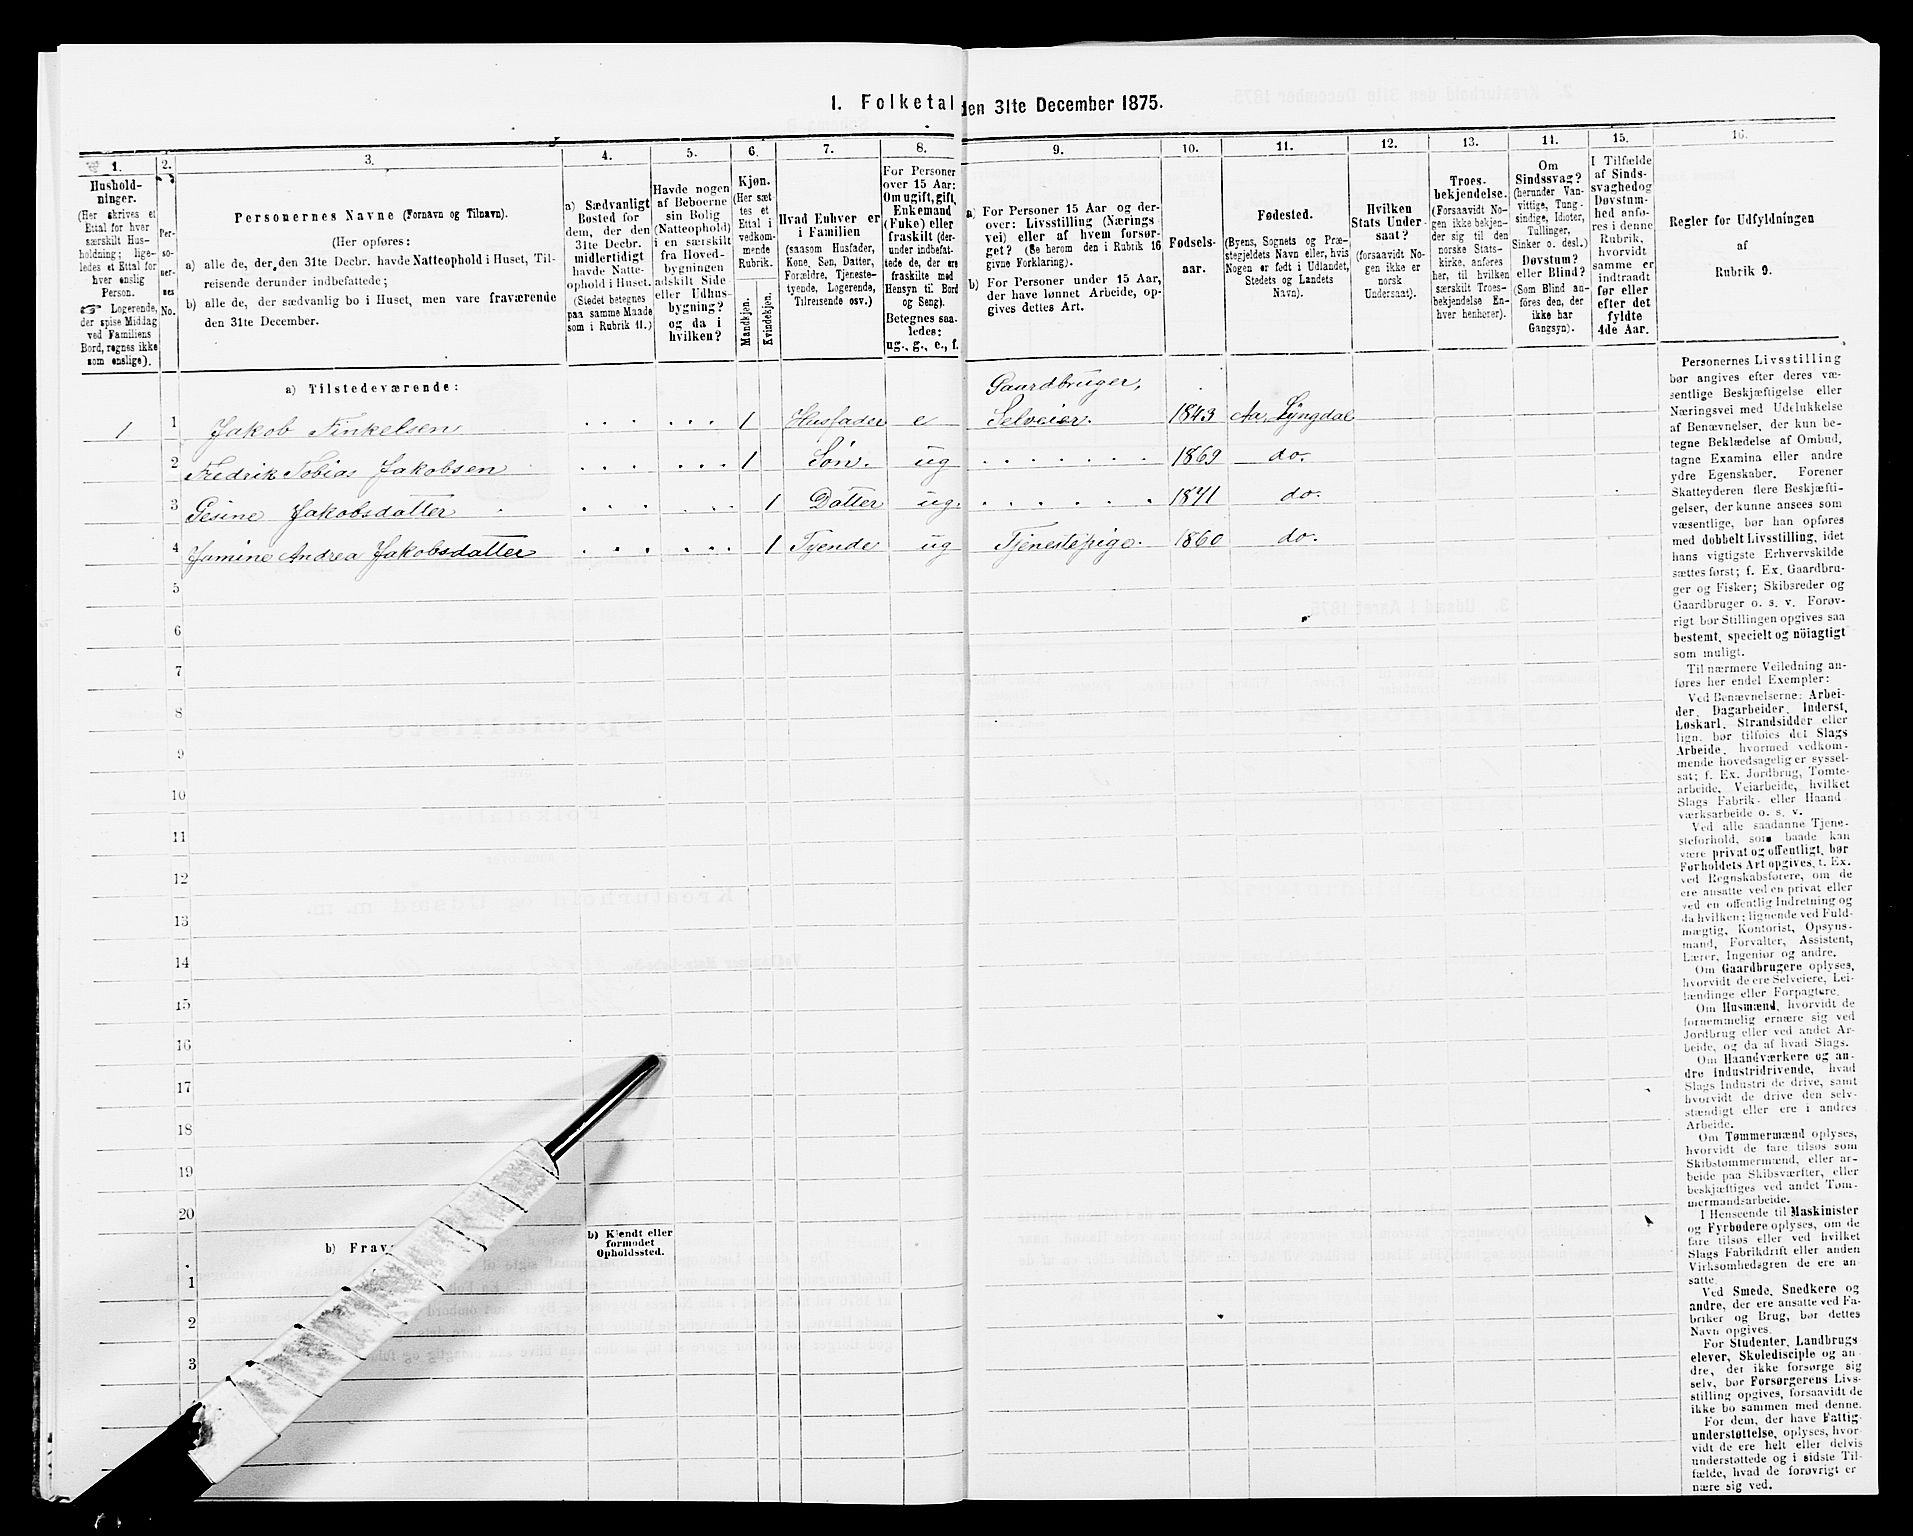 1. Folketal den 31te December 1875.
1.
Hushold-
ninger.
(Her skrives et
Ettal for hver
særskilt Hus-
holdning; lige-
ledes et Ettal for
hver enslig
Person.
☞ Logerende,
der spise Middag
ved Familiens
Bord, regnes ikke
som enslige).
2.
Per-
so-
ner-
nes
No.
3.
Personernes Navne (Fornavn og Tilnavn).
(Her opføres:
a) alle de, der den 31te Decbr. havde Natteophold i Huset, Til-
reisende derunder indbefattede;
b) alle de, der sædvanlig bo i Huset, men vare fraværende
den 31te December.
4.
a) Sædvanligt
Bosted for
dem, der den
31te Decbr.
midlertidigt
havde Natte-
ophold i Huset.
(Stedet betegnes
paa samme Maade
som i Rubrik 11.)
5.
Havde nogen
af Beboerne
sin Bolig
(Natteophold)
i en særskilt
fra Hoved-
bygningen
adskilt Side
eller Udhus-
bygning?
og da i
hvilken?
6.
Kjøn.
(Her sæt-
tes et
Ettal i
vedkom-
mende
Rubrik.
Mandkjøn.
Kvindekjøn.
7.
Hvad Enhver er
i Familien
(saasom Husfader,
Kone, Søn, Datter,
Forældre, Tjeneste-
tyende, Logerende,
Tilreisende osv.)
8.
For Personer
over 15 Aar:
Om ugift, gift,
Enkemand
(Enke) eller
fraskilt (der-
under indbefat-
tede de, der ere
fraskilte med
Hensyn til Bord
og Seng).
Betegnes saa-
ledes:
ug., g., e., f.
9.
a) For Personer 15 Aar og der-
over: Livsstilling (Nærings-
vei) eller af hvem forsør-
get? (Se herom den i Rubrik 16
givne Forklaring).
b) For Personer under 15 Aar,
der have lønnet Arbeide, op-
gives dettes Art.
10.
Fødsels-
aar.
11.
Fødested.
(Byens, Sognets og Præ-
stegjeldets Navn eller, hvis
Nogen er født i Udlandet,
Stedets og Landets
Navn).
12.
Hvilken
Stats Under-
saat?
(forsaavidt No-
gen ikke er
norsk
Undersaat).
13.
Troes-
bekjendelse.
(Forsaavidt No-
gen ikke bekjen-
der sig til den
norske Stats-
kirke, anføres
her, til hvilken
særskilt Troes-
bekjendelse En-
hver henhører).
14.
Om
Sindssvag?
(herunder Van-
vittige, Tung-
sindige, Idioter,
Tullinger,
Sinker o. desl.)
Døvstum?
eller Blind?
(Som Blind an-
føres den, der
ikke har
Gangsyn).
15.
I Tilfælde
af Sinds-
svaghed og
Døvstum-
hed anfø-
res i denne
Rubrik,
hvorvidt
samme er
indtraadt
før eller
efter det
fyldte
4de Aar.
16.
Regler for Udfyldningen
af
Rubrik 9.
a) Tilstedeværende:
Gaardbruger,
1 1 Jakob Finkelsen 1 Husfader e Selveier. 1843 Aa, Lyngdal
2 Fredrik Tobias Jakobsen 1 Søn. ug 1869 do.
3 Gesine Jakobsdatter 1 Datter ug. 1871 do.
4 Jamine Andrea Jakobsdatter 1 Tyende ug Tjenestepige. 1860 do.
5
6
7
8
9
10
11
12
13
14
15
16
17
18
19
20
b) Frav
b) Kjendt eller
formodet
Opholdssted.
1
2
3
Personernes Livsstilling
bør angives efter deres væ-
sentlige Beskjæftigelse eller
Næringsvei med Udelukkelse
af Benævnelser, der kun be-
tegne Beklædelse af Ombud,
tagne Examina eller andre
ydre Egenskaber. Forener
Skatteyderen flere Beskjæfti-
gelser, der kunne ansees som
væsentlige, bør han opføres
med dobbelt Livsstilling, idet
hans vigtigste Erhvervskilde
sættes først; f. Ex. Gaardbru-
ger og Fisker; Skibsreder og
Gaardbruger o. s. v. Forøv-
rigt bør Stillingen opgives saa
bestemt, specielt og nöiagtigt
som muligt.
Til nærmere Veiledning an-
føres her endel Exempler:
Ved Benævnelserne: Arbei-
der, Dagarbeider, Inderst,
Løskarl, Strandsidder eller
lign. bør tilføies det Slags
Arbeide, hvormed vedkom-
mende hovedsagelig er syssel-
sat; f. Ex. Jordbrug, Tomte-
arbeide, Veiarbeide, hvilket
Slags Fabrik- eller Haand
værksarbeide o. s. v.
Ved alle saadanne Tjene-
steforhold, som baade kan
være privat og offentligt, bør
Forholdets Art opgives, t. Ex.
ved Regnskabsførere, om de
ere ansatte ved en privat eller
ved en offentlig Indretning og
da hvilken; lignende ved Fuld-
mægtig, Kontorist, Opsyns-
mand, Forvalter, Assistent,
Lærer, Ingeniør og andre.
Om Gaardbrugere oplyses,
hvorvidt de ere Selveiere, Lei-
lændinge eller Forpagtere.
Om Husmænd, hvorvidt de
fornemmelig ernære sig ved
Jordbrug eller ved andet Ar-
beide, og da af hvad Slags.
Om Haandværkere og an-
dre Industridrivende, hvad
Slags Industri de drive, samt
hvorvidt de drive den selv-
stændigt eller ere i andres
Arbeide.
Om Tømmermænd oplyses,
hvorvidt de fare tilsøs som
Skibstømmermænd, eller ar-
beide paa Skibsværfter, eller
beskjæftiges ved andet Tøm-
mermandsarbeide.
I Henseende til Maskinister
og Fyrbødere oplyses, om de
fare tilsøs eller ved hvilket
Slags Fabrikdrift eller anden
Virksomhedsgren de ere an-
satte.
Ved Smede, Snedkere og
andre, der ere ansatte ved Fa-
briker og Brug, bør dettes
Navn opgives.
For Studenter, Landbrugs
elever, Skoledisciple og an-
dre, der ikke forsørge sig
selv, bør Forsørgerens Livs-
stilling opgives, forsaavidt de
ikke bo sammen med denne.
For dem, der have Fattig-
understøttelse, oplyses, hvor-
vidt de ere helt eller delvis
understøttede og i sidste Til-
fælde, hvad de forøvrigt er
nære sig ved.